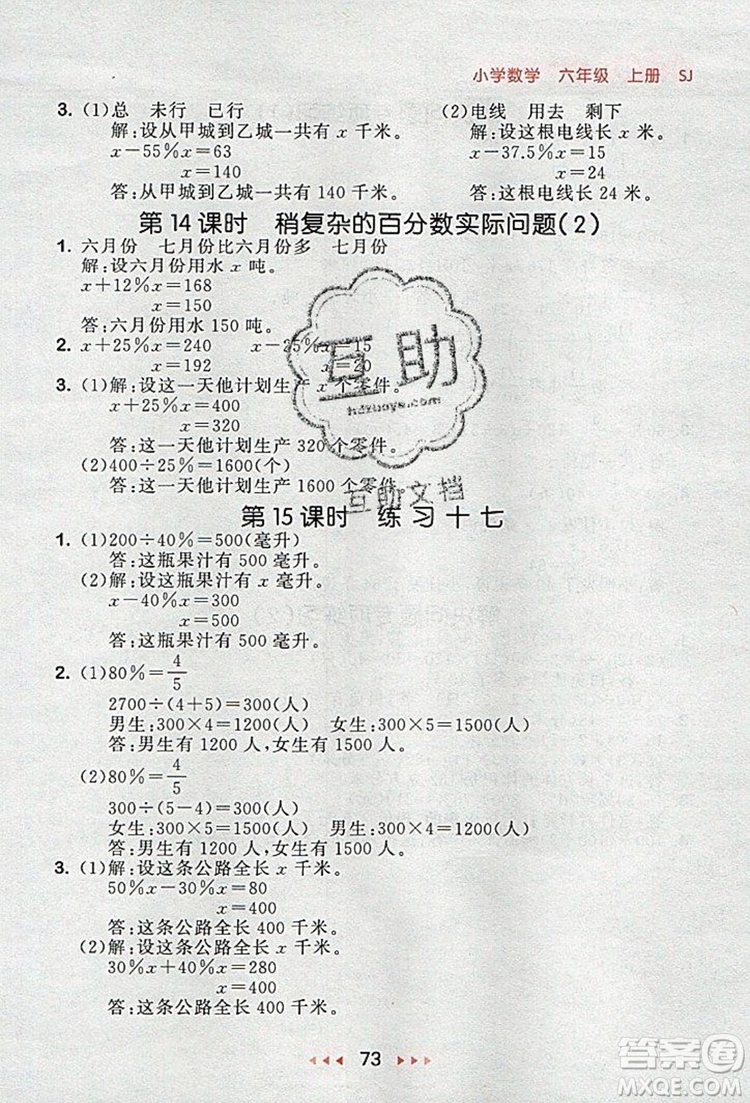 小学数学 六年级 上册 SJ
3. (1)总 未行 已行
解:设从甲城到乙城一共有 x 千米。
x－55%x＝63
x＝140
答:从甲城到乙城一共有 140 千米。
(2)电线 用去 剩下
解:设这根电线长 x 米。
x－37.5%x＝15
x＝24
答:这根电线长 24 米。
第 14 课时 稍复杂的百分数实际问题(2)
1. 六月份 七月份比六月份多 七月份
解:设六月份用水 x 吨。
x＋12%x＝168
x＝150
答:六月份用水 150 吨。
2. x＋25%x＝240 x－25%x＝15
x＝192 x＝20
3. (1)解:设这一天他计划生产 x 个零件。
x＋25%x＝400
x＝320
答:这一天他计划生产 320 个零件。
(2)400÷25%＝1600(个)
答:这一天他计划生产 1600 个零件。
互助
hdzuoye.com
互助文档
第 15 课时 练习十七
1. (1)200÷40%＝500(毫升)
答:这瓶果汁有 500 毫升。
(2)解:设这瓶果汁有 x 毫升。
x－40%x＝300
x＝500
答:这瓶果汁有 500 毫升。
2. (1)80%＝4/5
2700÷(4＋5)＝300(人)
男生:300×4＝1200(人) 女生:300×5＝1500(人)
答:男生有 1200 人,女生有 1500 人。
(2)80%＝4/5
300÷(5－4)＝300(人)
女生:300×5＝1500(人) 男生:300×4＝1200(人)
答:男生有 1200 人,女生有 1500 人。
3. (1)解:设这条公路全长 x 千米。
50%x－30%x＝80
x＝400
答:这条公路全长 400 千米。
(2)解:设这条公路全长 x 千米。
30%x＋40%x＝280
x＝400
答:这条公路全长 400 千米。
73
答案圈
MXQE.COM